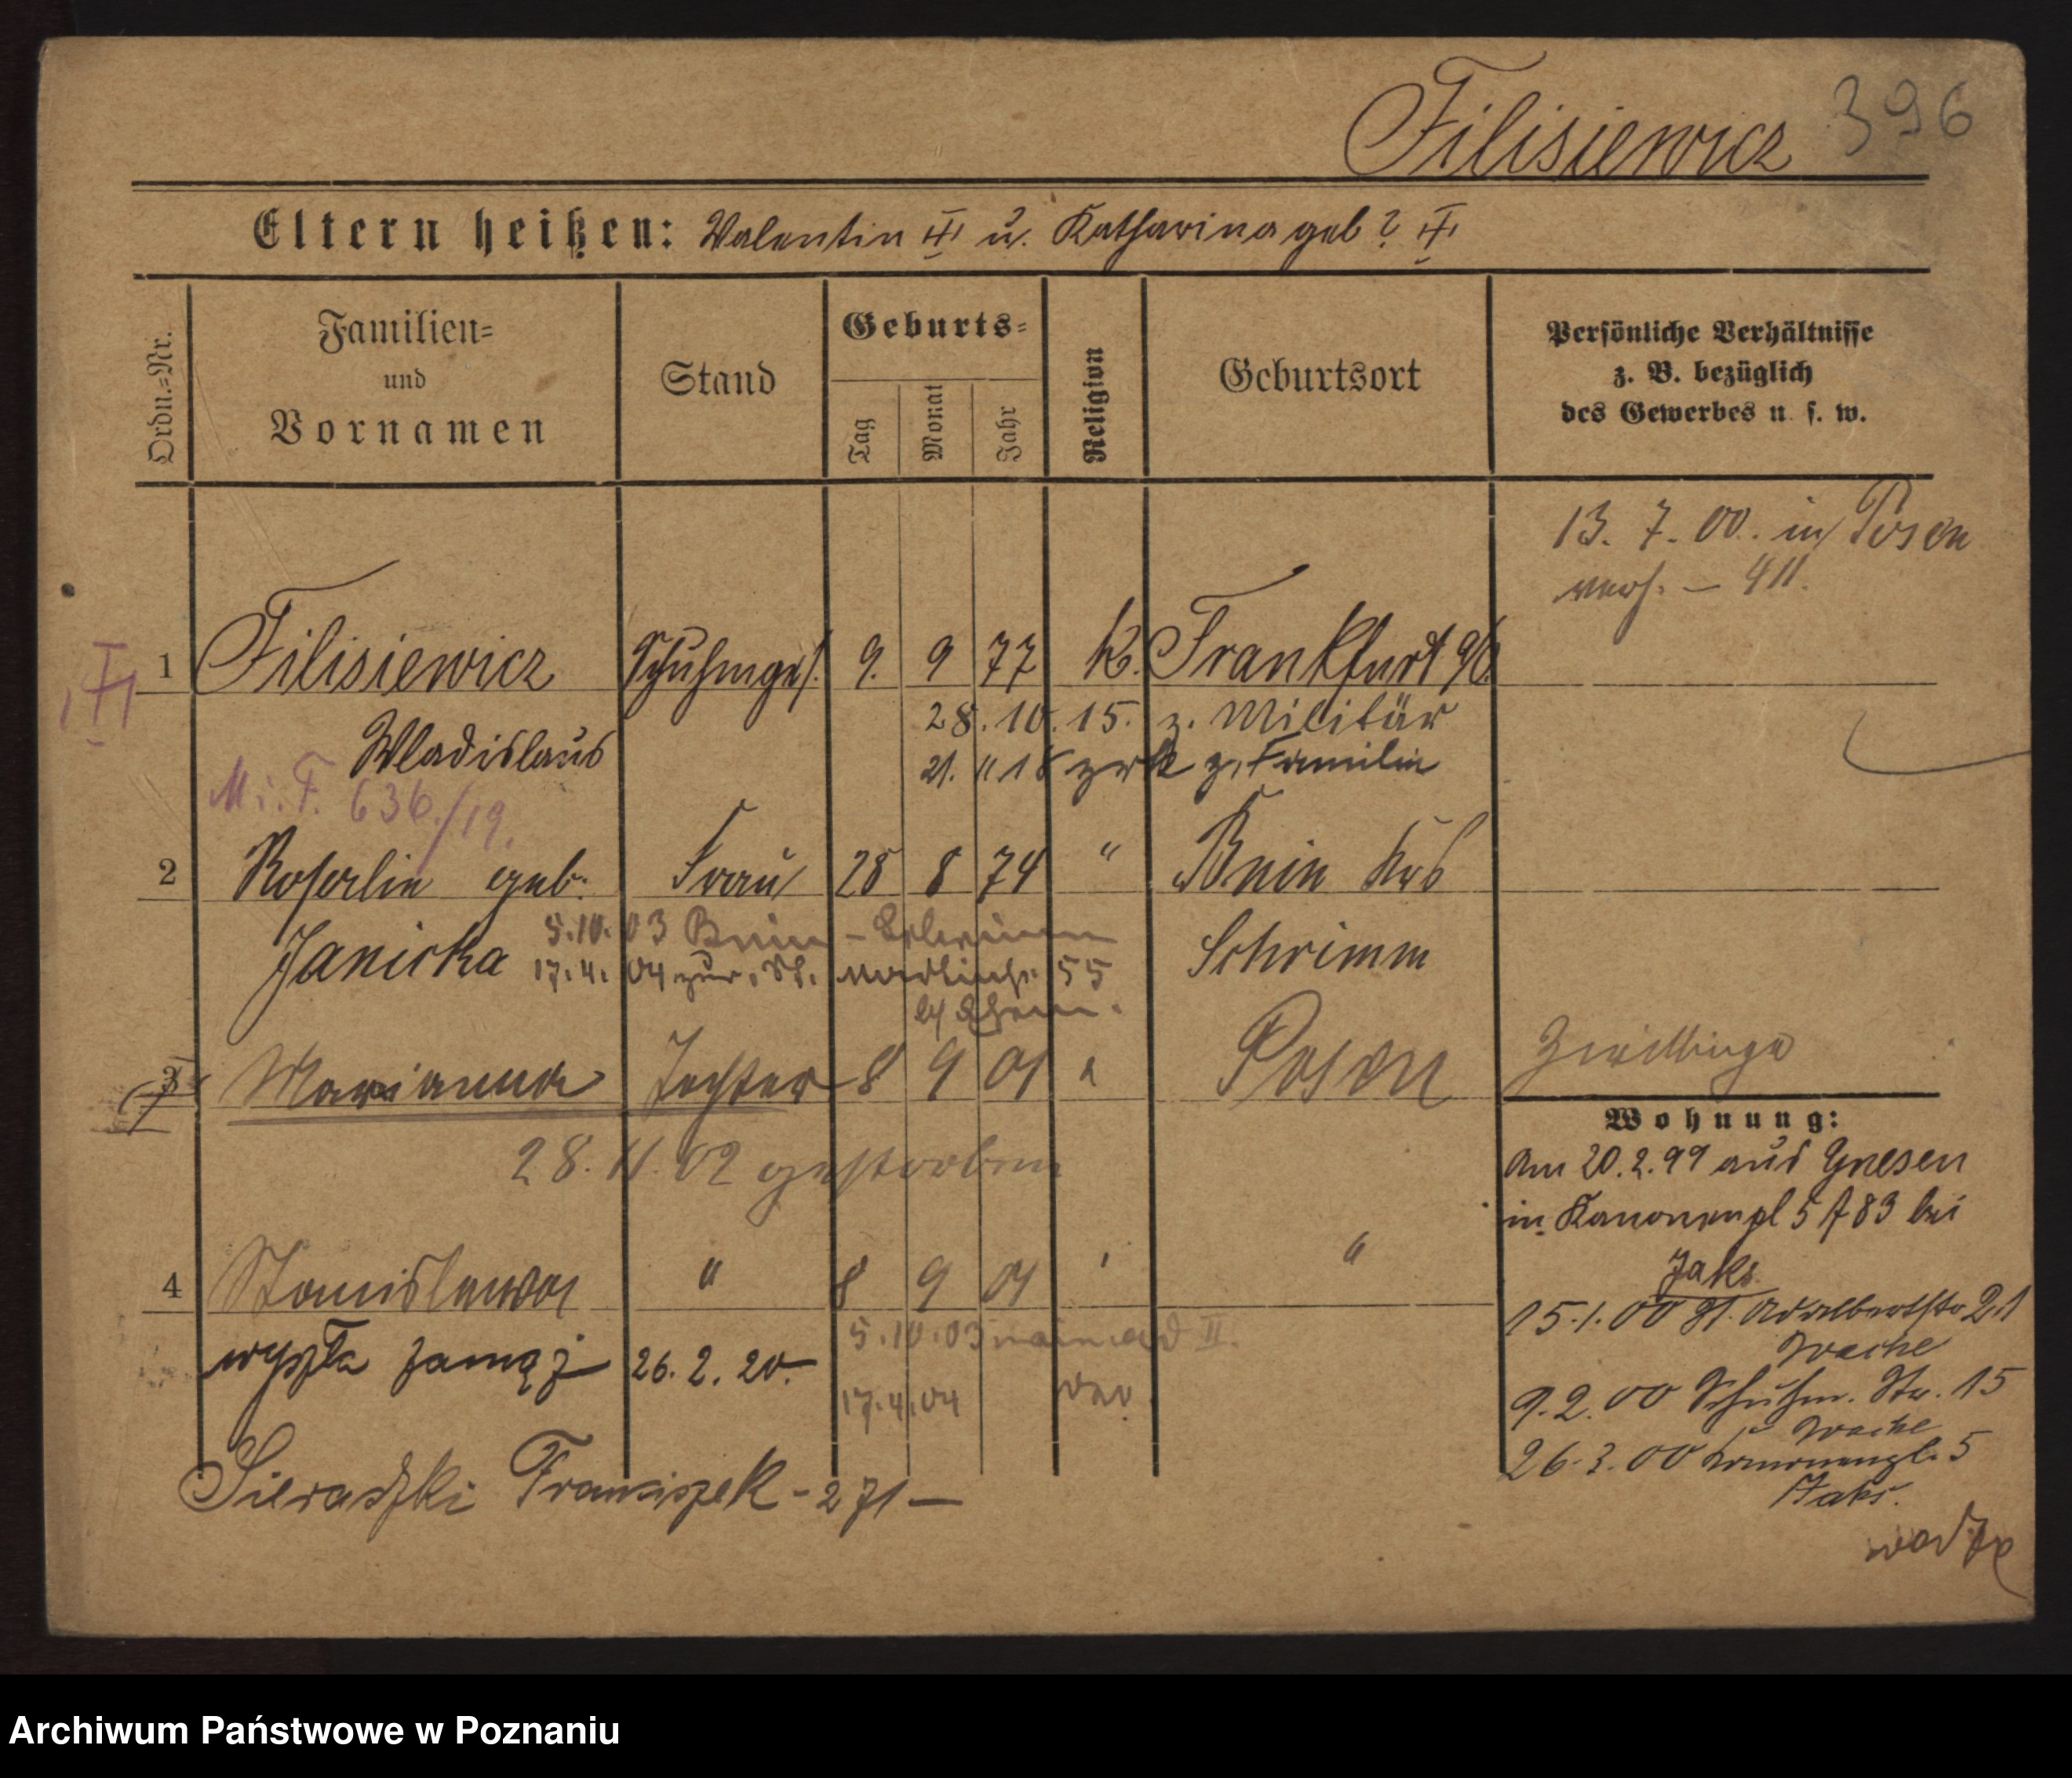 Filisiewicz 396
Eltern heißen: Valentin u. Katharina geb ?
Ordn.=Nr.
Familien=
und
Vornamen
Stand
Geburts=
Tag
Monat
Jahr
Religion
Geburtsort
Persönliche Verhältnisse
z. B. bezüglich
des Gewerbes u. s. w.
13. 7. 00. in Posen
verh. — 411.
1 Filisiewicz Schuhmges. 9. 9 77 K. Frankfurt
28. 10. 15. z. Militär
Wladislaus
z. Familie
M. F. 636/19.
2 geb. Frau 28 8 74 " Bnin Krs
Janicka
5.10.03 Bnin
Schrimm
17.4.04 55
3 Marianna Tochter 8 9 01 " Posen Zwillinge
28. 11. 02 gestorben
Wohnung:
Am 20.2.99 aus Gnesen
in Kanonenpl 5 bei
Jaks
4 Stanislawa " 8 9 01 " "
15.1.00 St. Adalbertstr 21
Wache
5.10.03
wyszła zamąż 26. 2. 20.
17.4.04
9.2.00 Schuhm. Str. 15
Wache
26.3.00 Kanonenpl. 5
Jaks.
Sieradzki Franciszek - 271 —
Archiwum Państwowe w Poznaniu